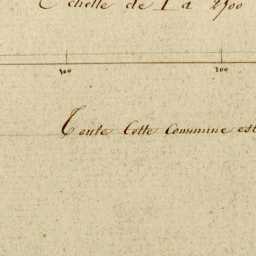 Echelle de 1 a 2500
100 200
Toute Cette Commune est